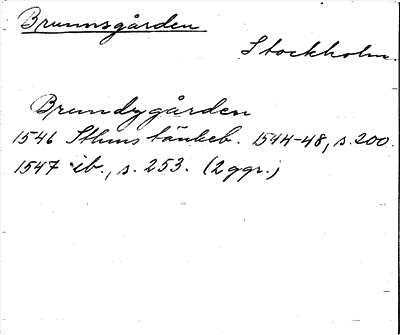 Brunnsgården
Stockholm.
Brundygården
1546 Sthms tänkeb. 1544-48, s. 200.
1547 ib., s. 253. (2 ggr.)